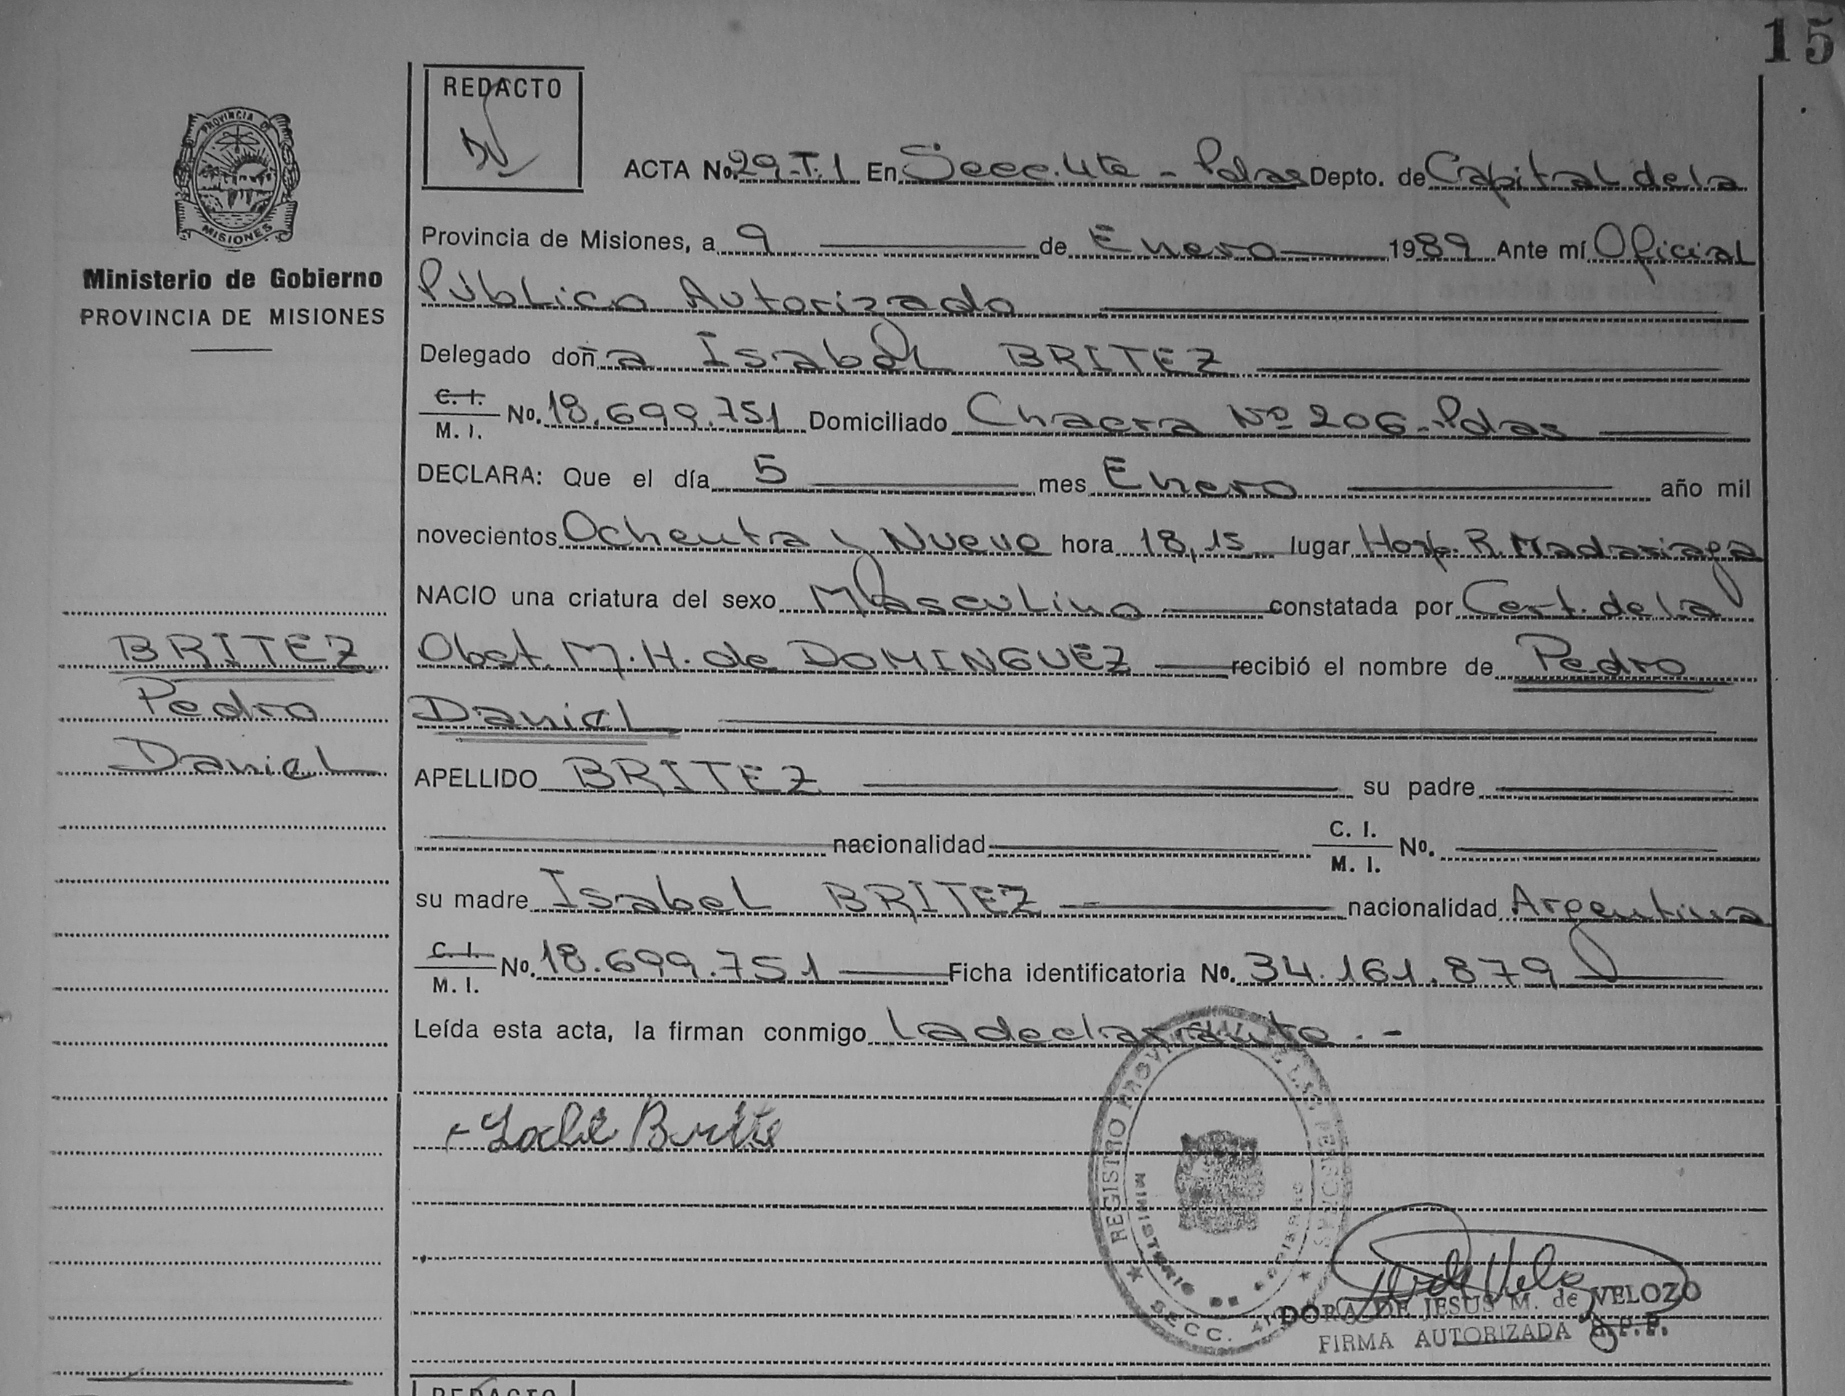 15
REDACTO
PROVINCIA DE
MISIONES
Ministerio de Gobierno
PROVINCIA DE MISIONES
ACTA No. 29-T.1 En Secc. 4ta - Pdas Depto. de Capital de la
Provincia de Misiones, a 9 de Enero 1989 Ante mí Oficial
Público Autorizado
Delegado doña Isabel BRITEZ
C. I. / M. I. No. 18.699.751 Domiciliado Chacra Nº 206 - Pdas
DECLARA: Que el día 5 mes Enero año mil
novecientos Ochenta y Nueve hora 18,15 lugar Hosp. R. Madariaga
NACIO una criatura del sexo Masculino constatada por Cert. de la
Obst. M. H. de DOMINGUEZ recibió el nombre de Pedro
Daniel
APELLIDO BRITEZ su padre
nacionalidad C. I. / M. I. No.
su madre Isabel BRITEZ nacionalidad Argentina
C. I. / M. I. No. 18.699.751 Ficha identificatoria No. 34.161.879
Leída esta acta, la firman conmigo la declarante . -
BRITEZ
Pedro
Daniel
REGISTRO PROVINCIAL DE LAS PERSONAS
MINISTERIO DE GOBIERNO
SECC. 4
DORA DE JESUS M. de VELOZO
FIRMA AUTORIZADA R.P.P.
REDACTO